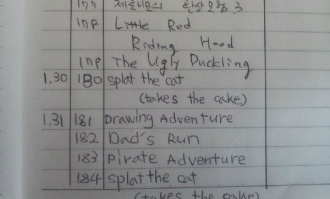 177 제로니모의 환상모험 3
178 Little Red
Riding Hood
179 The Ugly Duckling
1.30 180 splat the cat
(takes the cake)
1.31 181 Drawing Adventure
182 Dad's Run
183 Pirate Adventure
184 splat the cat
(takes the cake)